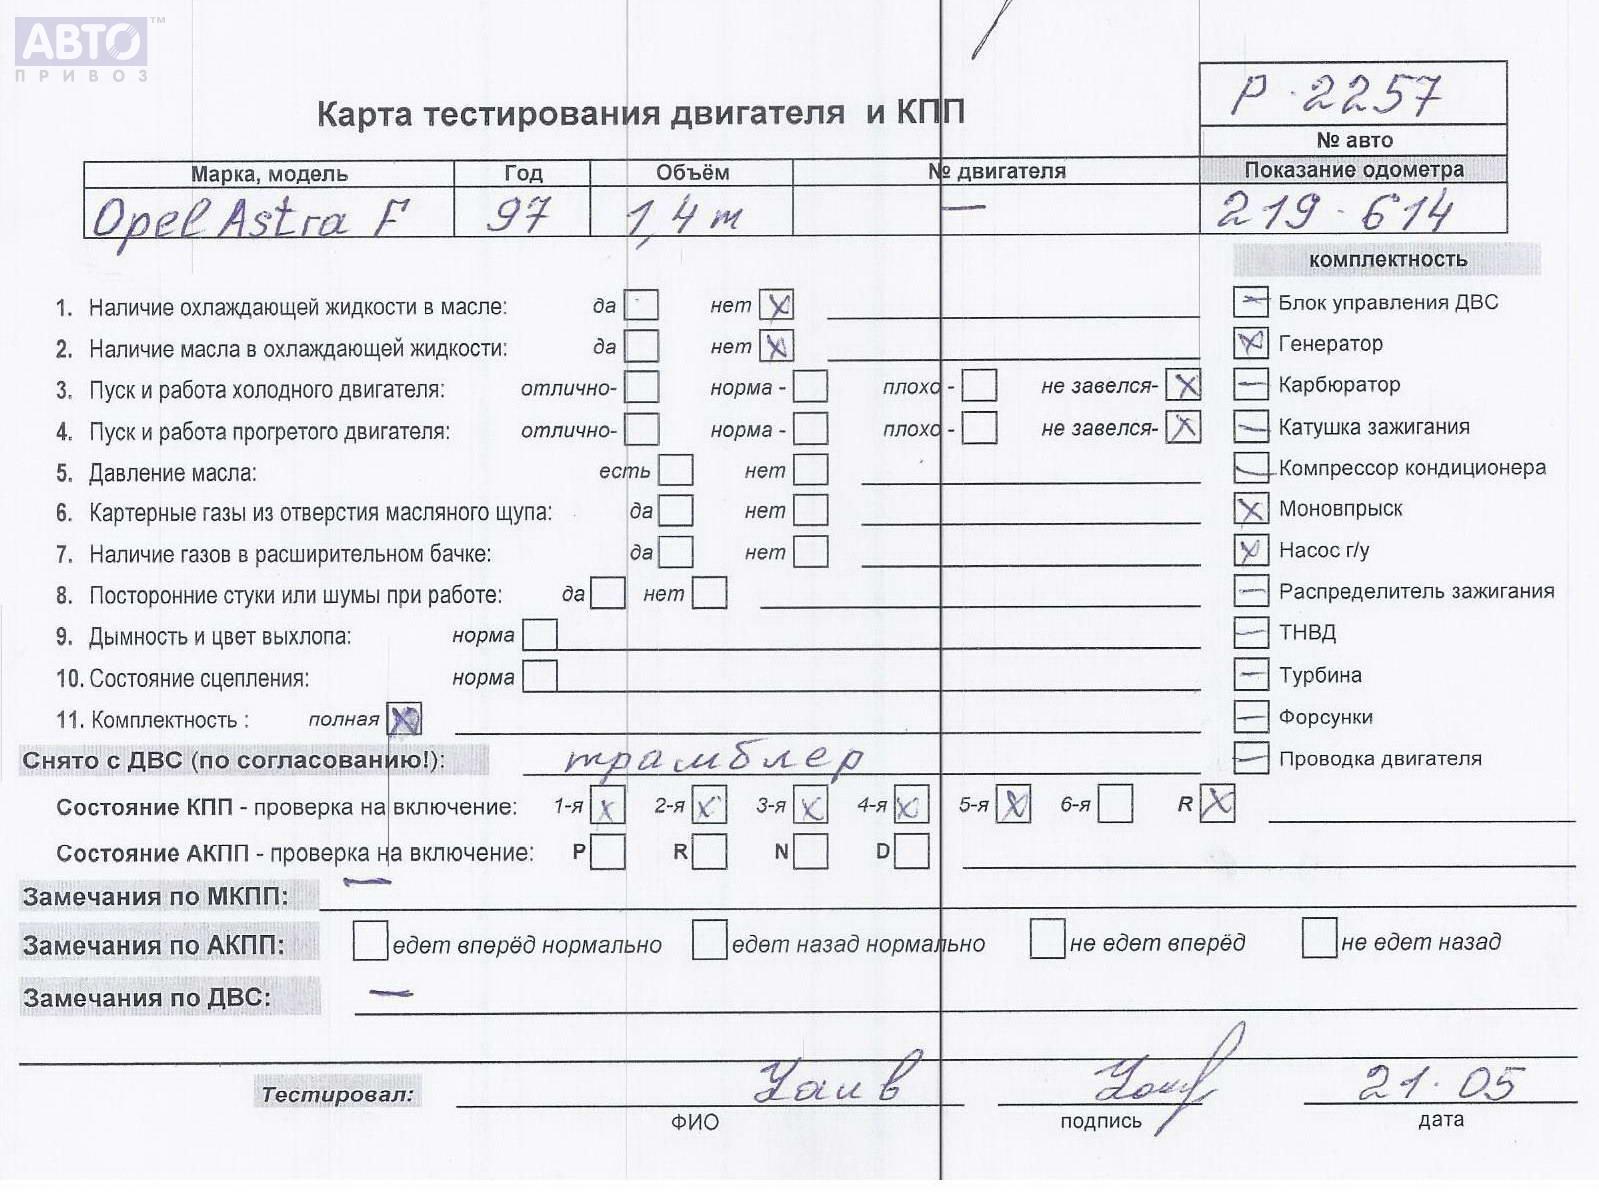 АВТО™
ПРИВОЗ
Р-2257
Карта тестирования двигателя и КПП
№ авто
Марка, модель Год Объём № двигателя Показание одометра
Opel Astra F 97 1,4 т — 219-614
комплектность
1. Наличие охлаждающей жидкости в масле: да нет X
Блок управления ДВС
2. Наличие масла в охлаждающей жидкости: да нет X
X Генератор
3. Пуск и работа холодного двигателя: отлично- норма - плохо - не завелся- X
— Карбюратор
4. Пуск и работа прогретого двигателя: отлично- норма - плохо - не завелся- X
— Катушка зажигания
5. Давление масла: есть нет
— Компрессор кондиционера
6. Картерные газы из отверстия масляного щупа: да нет
X Моновпрыск
7. Наличие газов в расширительном бачке: да нет
X Насос г/у
8. Посторонние стуки или шумы при работе: да нет
— Распределитель зажигания
9. Дымность и цвет выхлопа: норма
— ТНВД
10. Состояние сцепления: норма
— Турбина
11. Комплектность : полная X
— Форсунки
Снято с ДВС (по согласованию!): трамблер
— Проводка двигателя
Состояние КПП - проверка на включение: 1-я X 2-я X 3-я X 4-я X 5-я X 6-я R X
Состояние АКПП - проверка на включение: P R N D
Замечания по МКПП: —
Замечания по АКПП: едет вперёд нормально едет назад нормально не едет вперёд не едет назад
Замечания по ДВС: —
Тестировал: 21.05
ФИО подпись дата